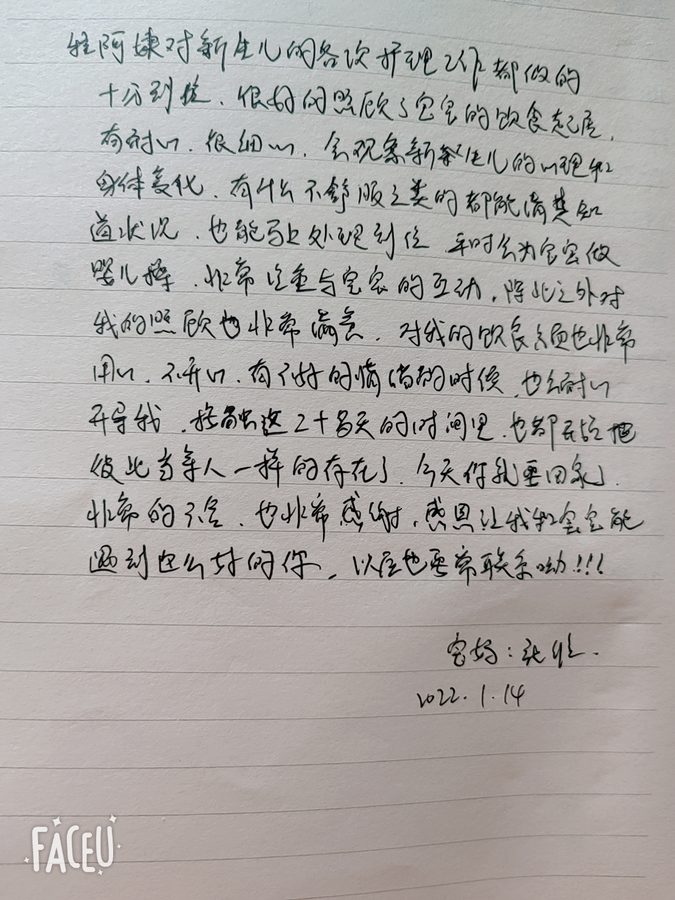 阿姨对新生儿的各项护理工作都做的
十分到位、很好的照顾了宝宝的饮食起居,
有耐心、很细心、会观察新生儿的心理和
身体变化、有什么不舒服之类的都能清楚知
道状况、也能马上处理到位 平时会为宝宝做
婴儿操、非常注重与宝宝的互动,除此之外对
我的照顾也非常满意、对我的饮食方面也非常
用心、不开心、有不好的情绪的时候、也会耐心
开导我、接触这二十多天的时间里、也都互相把
彼此当亲人一样的存在了、今天你就要回家了、
非常的不舍、也非常感谢,感恩让我和宝宝能
遇到这么好的你、以后也要常联系呦!!!
宝妈:
2022.1.14
FACEU